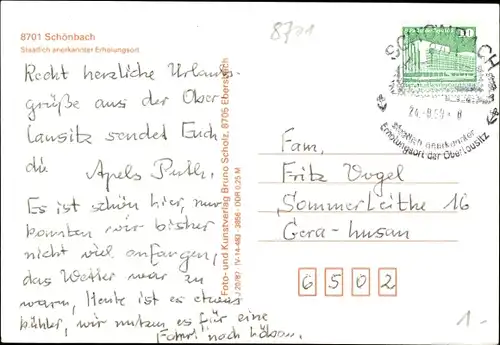 8701 Schönbach
Staatlich anerkannter Erholungsort
8701
Recht herzliche Urlaubs-
grüße aus der Ober
lausitz sendet Euch
die
Es ist schön hier, nur
konnten wir bisher
nicht viel anfangen,
das Wetter war zu
warm, Heute ist es etwas
kühler, wir nutzen es für eine
Fahrt nach Löbau.
Foto- und Kunstverlag Bruno Scholz, 8705 Ebersbach
J 20/87 IV-14-483 3956 DDR 0,25 M
10
SCHÖNBACH
24.-8.89 - 8
staatlich anerkannter
Erholungsort der Oberlausitz
Fam.
Fritz Vogel
Sommerleithe 16
Gera-
6502
1.-